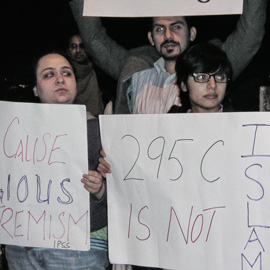 CAUSE
GIOUS
REMISM
IPSS
295 C
IS NOT
ISLAM